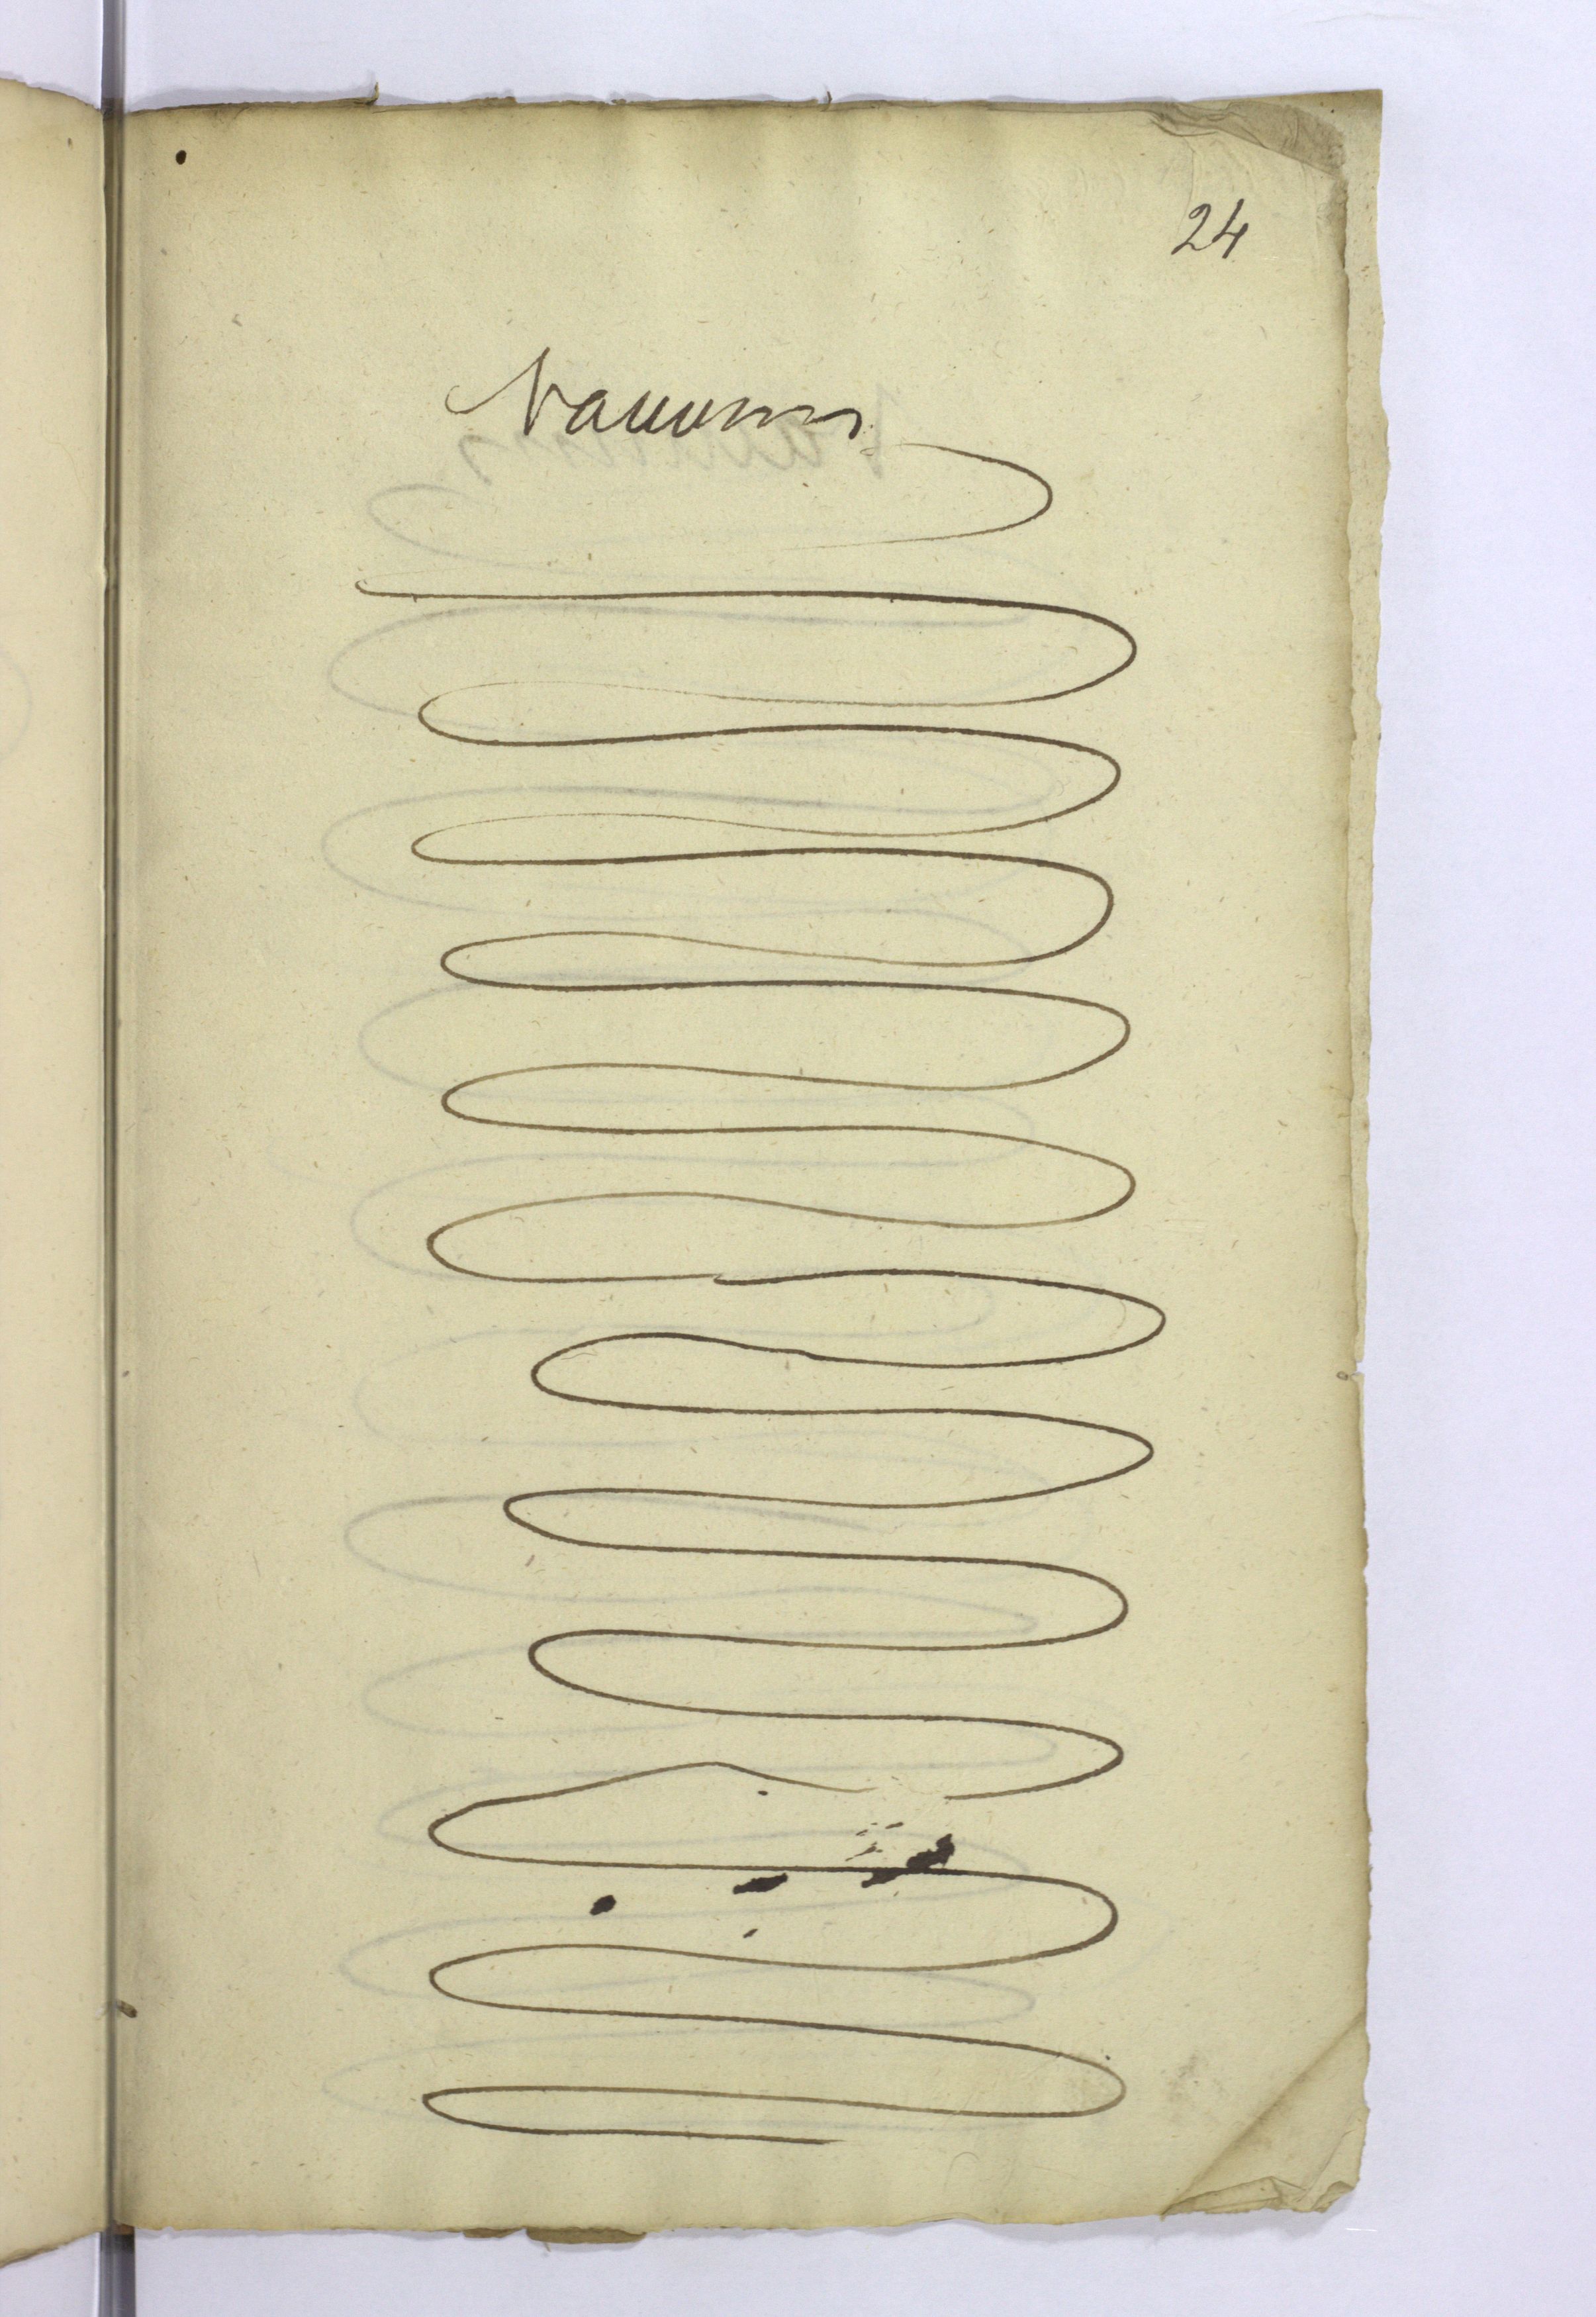 24
Vacuum